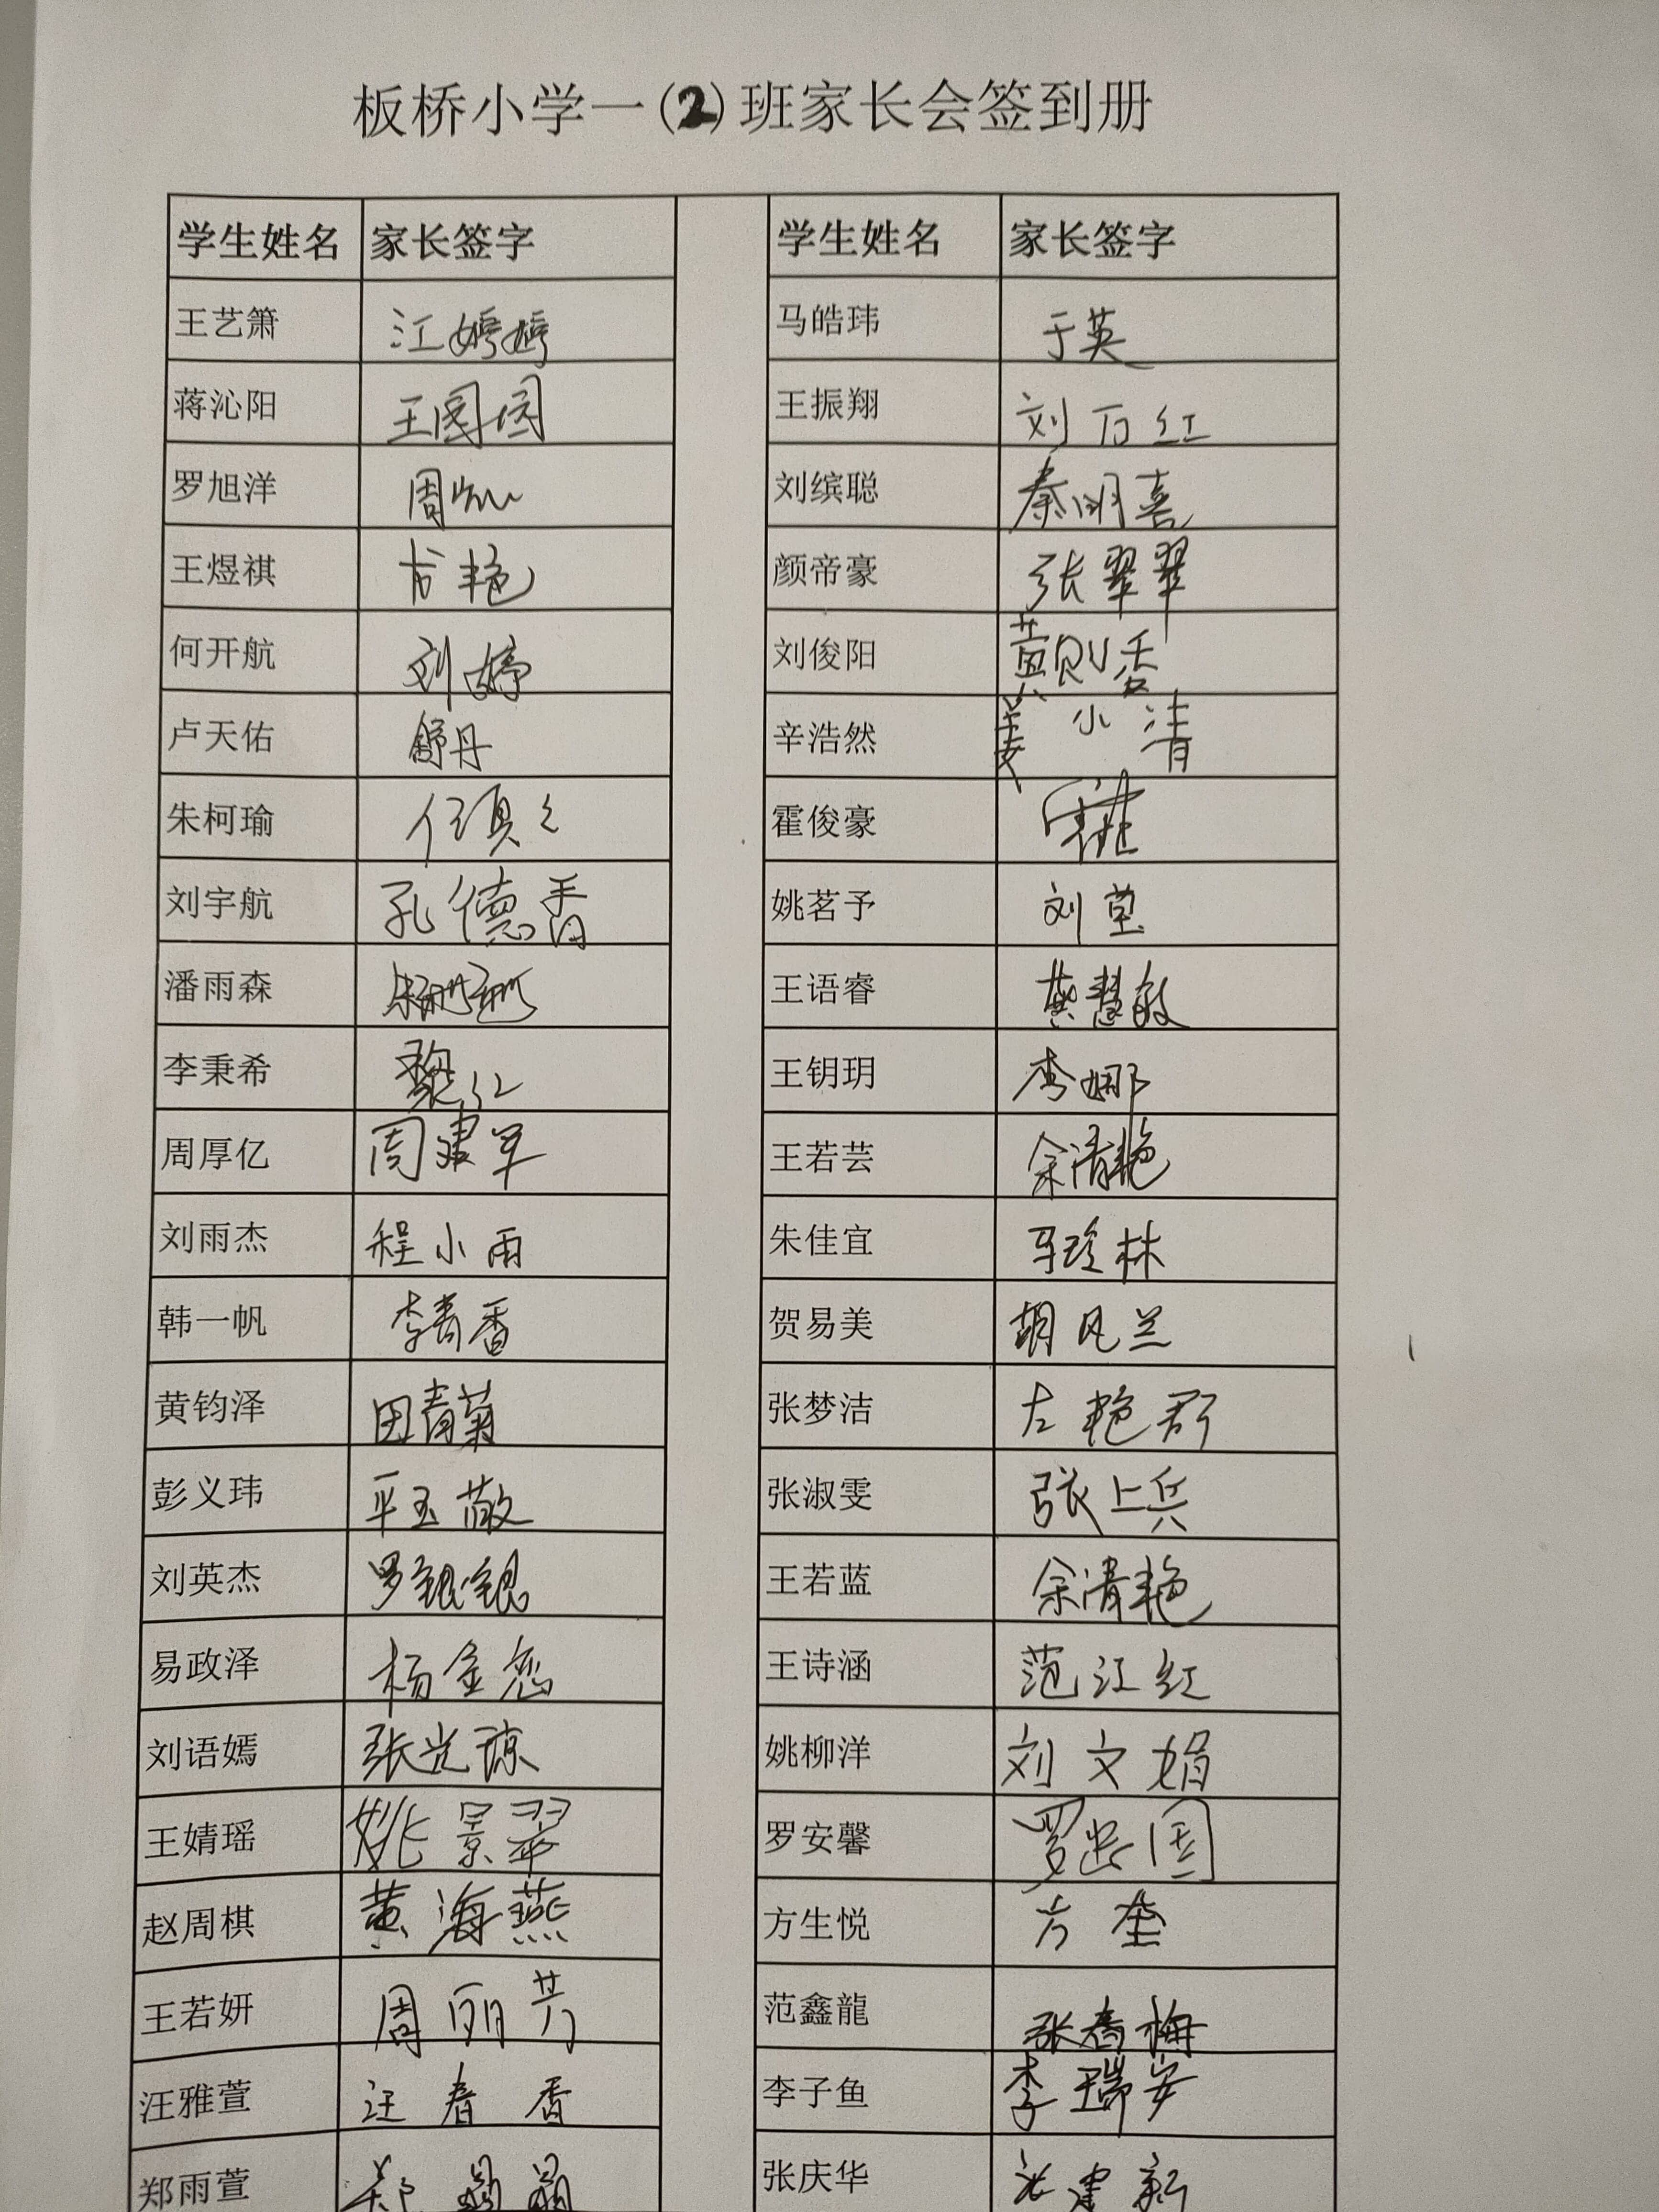 板桥小学一(2)班家长会签到册
学生姓名 家长签字 学生姓名 家长签字
王艺箫 江婷婷 马皓玮 于英
蒋沁阳 王园园 王振翔 刘万红
罗旭洋 周 刘缤聪 秦明喜
王煜祺 方艳 颜帝豪 张翠翠
何开航 刘婷 刘俊阳 黄则香
卢天佑 舒丹 辛浩然 姜小清
朱柯瑜 霍俊豪
刘宇航 孔德香 姚茗予 刘莹
潘雨森 朱珊珊 王语睿 龚慧敏
李秉希 黎红 王钥玥 李娜
周厚亿 周建军 王若芸 余清艳
刘雨杰 程小雨 朱佳宜 马珍林
韩一帆 李青香 贺易美 胡凤兰
黄钧泽 田青菊 张梦洁 左艳群
彭义玮 平玉敬 张淑雯 张上兵
刘英杰 罗银银 王若蓝 余清艳
易政泽 杨金恋 王诗涵 范江红
刘语嫣 张光琼 姚柳洋 刘文娟
王婧瑶 姚景翠 罗安馨 罗忠国
赵周棋 黄海燕 方生悦 方奎
王若妍 周丽芳 范鑫龍 张春梅
汪雅萱 汪春香 李子鱼 李瑞安
郑雨萱 张庆华 张建新